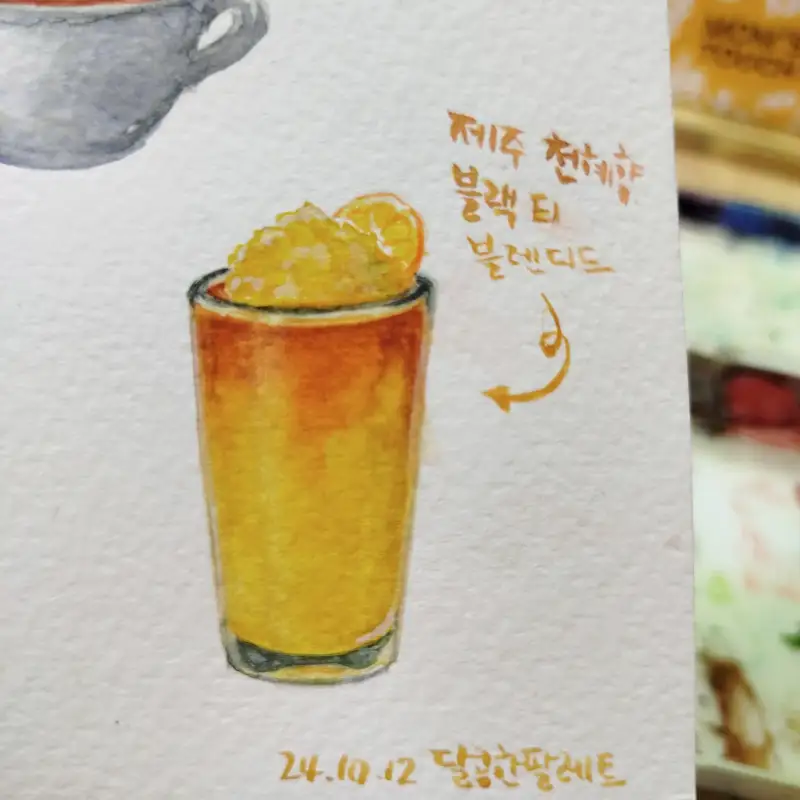 제주 천혜향
블랙 티
블렌디드
24.10.12 달콤한팔레트